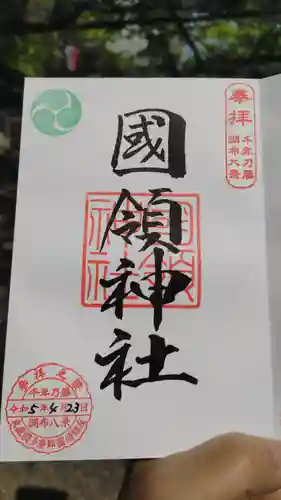 奉拝
千年乃藤
調布八景
國領神社
國領神社
参拝之証
千年乃藤
令和5年4月23日
調布八景